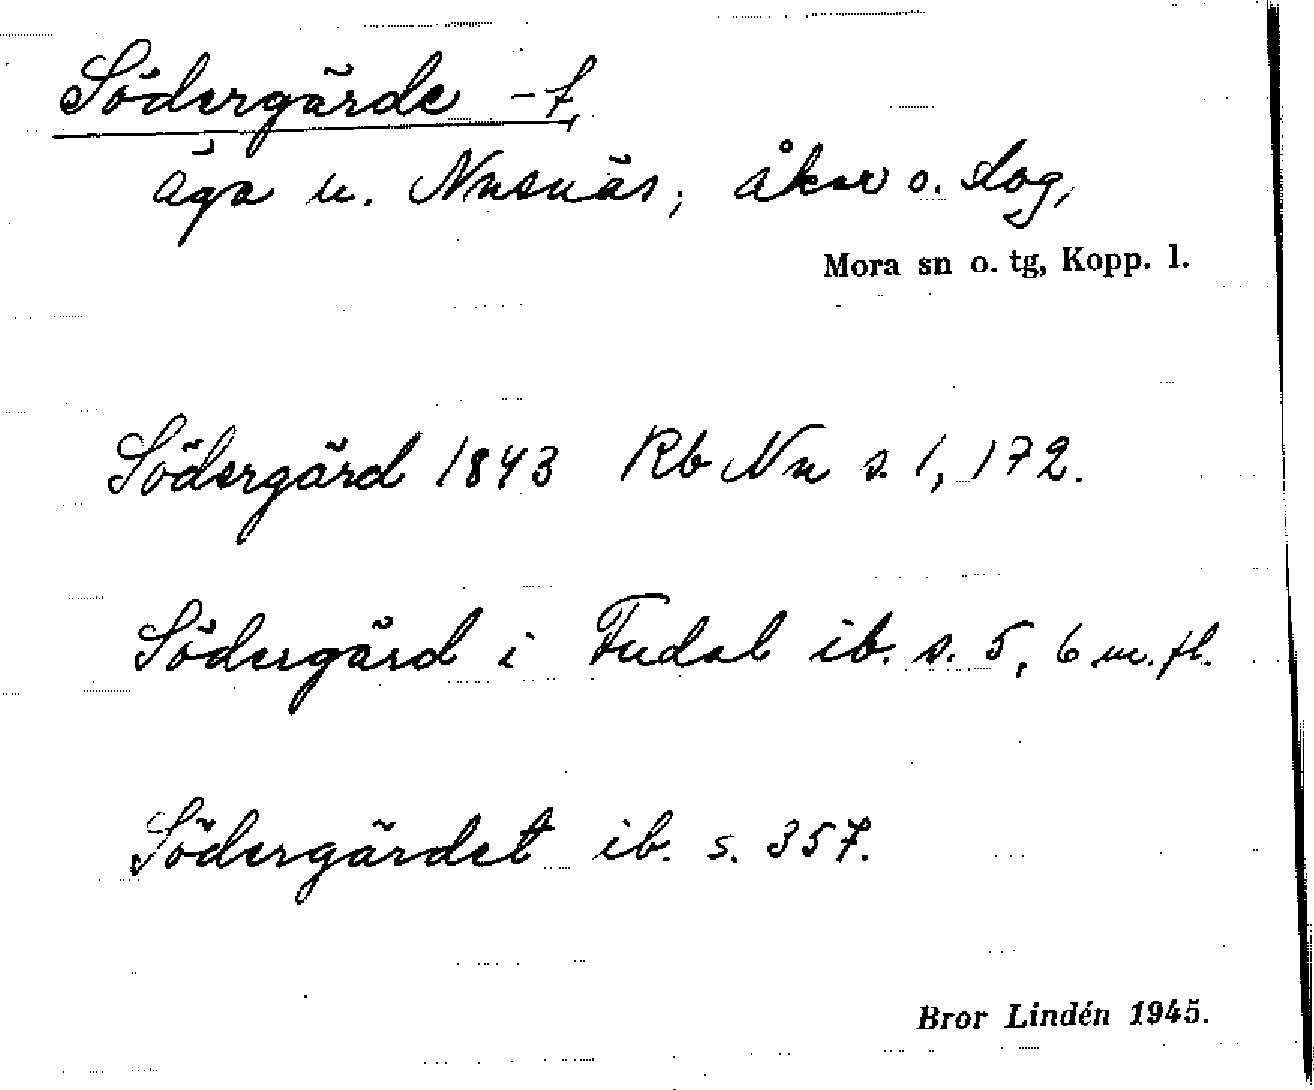 Södergärde -t
äga u. Nusnäs; åker o. slog,
Mora sn o. tg, Kopp. l.
Södergärd 1843 Rb Nu s. 1, 172.
Södergärd i Fudal ib. s. 5, 6 m. fl.
Södergärdet ib. s. 357.
Bror Lindén 1945.